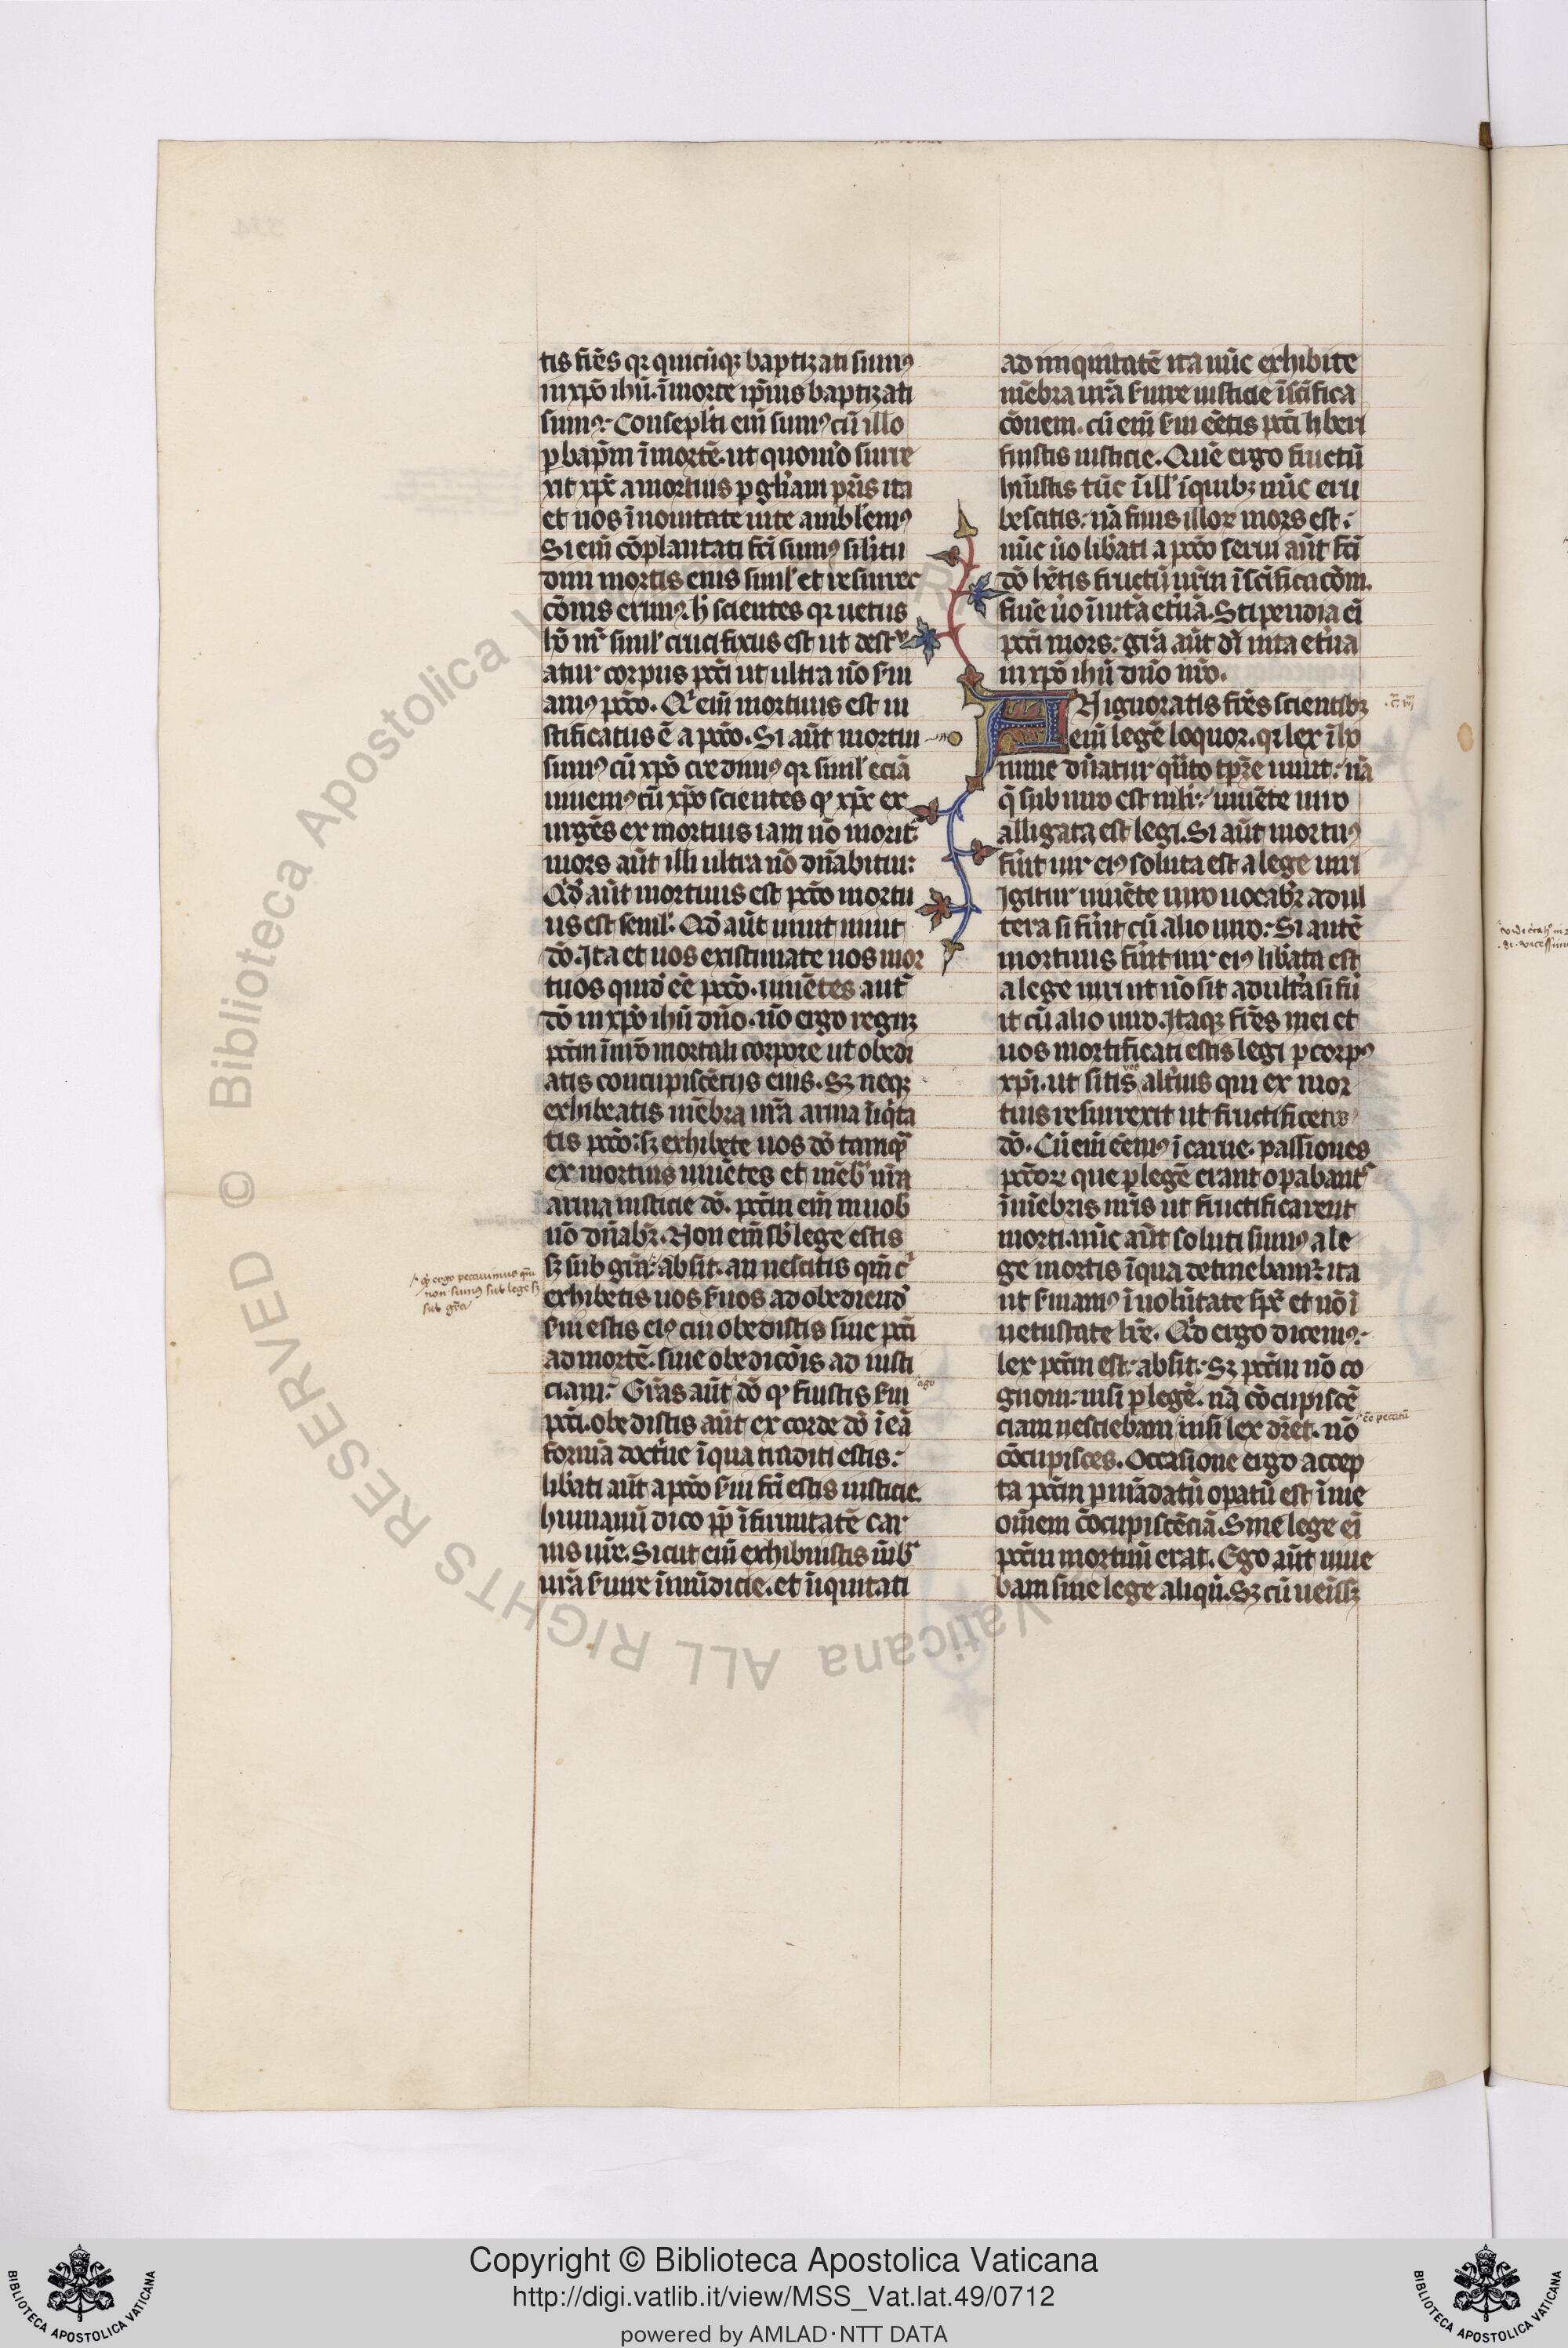 tis fr̄es qꝛ quicūqꝫ baptizati sumꝰ
in xp̄o ihū. ī morte ip̄ius baptizati
sumꝰ: Consepl̄ti eni̅ sumꝰ cū illo
ꝑ bap̄m ī mortē. ut quom̊o surre
xit xp̄c a mortuis ꝑ gl̄iam pr̄is ita
et nos ī nouitate uite ambl̄emꝰ
Si eni̅ cōplantati fc̄i sumꝰ sil̄itu
dini mortis eius siml̄ et resurrec
cōnis erimꝰ. h̄ scientes qꝛ uetus
hō nr̄ siml̄ crucifixus est ut destͬu
atur corpus pcc̄i ut ultra nō s̄ui
amꝰ pcc̄o. Qi eni̅ mortuus est iu
stificatus ē a pcc̄o. Si aūt mortui
sumꝰ cū xp̄o credimꝰ qꝛ siml̄ eciā
uiuemꝰ cū xp̄o scientes qꝙ xp̄c ex
urgēs ex mortuis iam nō morit᷑
mors aūt illi ultra nō dn̄abitur:
Qd̄ aūt mortuus est pcc̄o mortu
us est semł. Qd̄ aūt uiuit uiuit
dō. Ita et uos existimate uos mor
tuos quid̄ ēē pcc̄o. uiuētes aut̄
dō in xp̄o ihū dn̄o. nō ergo regn̄ꝫ
pcc̄m ī ur̄o mortali corpore ut obedi
atis concupiscētijs eius. Sꝫ neqꝫ
exhibeatis mēbra ur̄a arma īiq̄ta
tis pcc̄o: sꝫ exhibete uos dō tamqᷓ
ex mortuis uiuētes et mēbᷓ ur̄a
arma iusticie dō. pcc̄m eni̅ in uob̄
nō dn̄abꝛ̄. Non eni̅ sb̄ lege estis
sꝫ sub gr̄a: absit. an nescitis qm̄ cͥ
qͥd ergo peccauimus qm̄
non sumꝰ sub lege sꝫ
sub gr̄a
exhibetis uos s̄uos ad obediend̄
s̄ui estis eiꝰ cui obedistis siue pcc̄i
ad mortē. siue obedicōis ad iusti
ciam: Gr̄as aūt dō qꝙ fuistis s̄ui
ago
pcc̄i. obedistis aūt ex corde dō ī eā
formā doctͥne ī qua traditi estis:
lib̄ati aūt a pcc̄o s̄ui fc̄i estis iusticie.
humanū dico ꝓpꝑ īfirmitatē car
nis ur̄e. Sicut eni̅ exhibuistis mēbᷓ
ur̄a s̄uire īmūdicie. et īiquitati
ad iniquitatē ita nūc exhibite
mēbra ur̄a s̄uire iusticie ī sc̄ifica
cōnem. cū eni̅ s̄ui eētis pcc̄i liberi
fuistis iusticie. Quē ergo fructū
hūistis tūc ī ill̄ ī quibꝫ nūc eru
bescitis: nā finis illoꝝ mors est:
nūc ūo lib̄ati a pcc̄o serui aūt fc̄i
dō hētis fructū ur̄m ī sc̄ificacōm.
finē ūo ī uitā et̄nā. Stipendia ei̅
pcc̄i mors: gr̄a aūt dī uita et̄na
in xp̄o ihū dn̄o nr̄o.
AN ignoratis fr̄es scientibꝫ
c̄. vij
eni̅ legē loquor. qꝛ lex ī ho
mine dn̄atur qn̄to tp̄re uiuit: nā
q̄ sub uiro est młi: uiuēte uiro
alligata est legi. Si aūt mortuꝰ
fūit uir eiꝰ soluta est a lege uiri
Igitur uiuēte uiro uocabꝛ̄ adul
tera si fūit cū alio uiro: Si autē
mortuus fūit uir eiꝰ lib̄ata est
a lege uiri ut nō sit adult̄a si fū
it cū alio uiro. Itaqꝫ fr̄es mei et
uos mortificati estis legi ꝑ corpꝰ
xp̄i. ut sitis uos alt̄ius qui ex mor
tuis resurrexit ut fructificetis
dō. Cū eni̅ eēmꝰ ī carne. passiones
pcc̄oꝝ que ꝑ legē erant oꝑabant᷑
ī mēbris nr̄is ut fructificarent
morti. nūc aūt soluti sumꝰ a le
ge mortis ī qua detinebamꝛ̄: ita
ut s̄uiamꝰ ī nouitate sp̄c et nō ī
uetustate lr̄e. Qd̄ ergo dicemꝰ:
lex pcc̄m est: absit: Sꝫ pcc̄m nō co
gnoui: nisi ꝑ legē. nā cōcupiscē
ciam nesciebam nisi lex dr̄et. nō
eē peccatū
cōcupisces. Occasione ergo accep
ta pcc̄m ꝑ mādatū oꝑatū est ī me
om̄em cōcupiscēciā. Sine lege ei̅
pcc̄m mortuū erat. Ego aūt uiue
bam sine lege aliqn̄. Sꝫ cū uenissꝫ
© Biblioteca Apostolica Vaticana ALL RIGHTS RESERVED
BIBLIOTECA APOSTOLICA VATICANA
Copyright © Biblioteca Apostolica Vaticana
http://digi.vatlib.it/view/MSS_Vat.lat.49/0712
powered by AMLAD·NTT DATA
BIBLIOTECA APOSTOLICA VATICANA